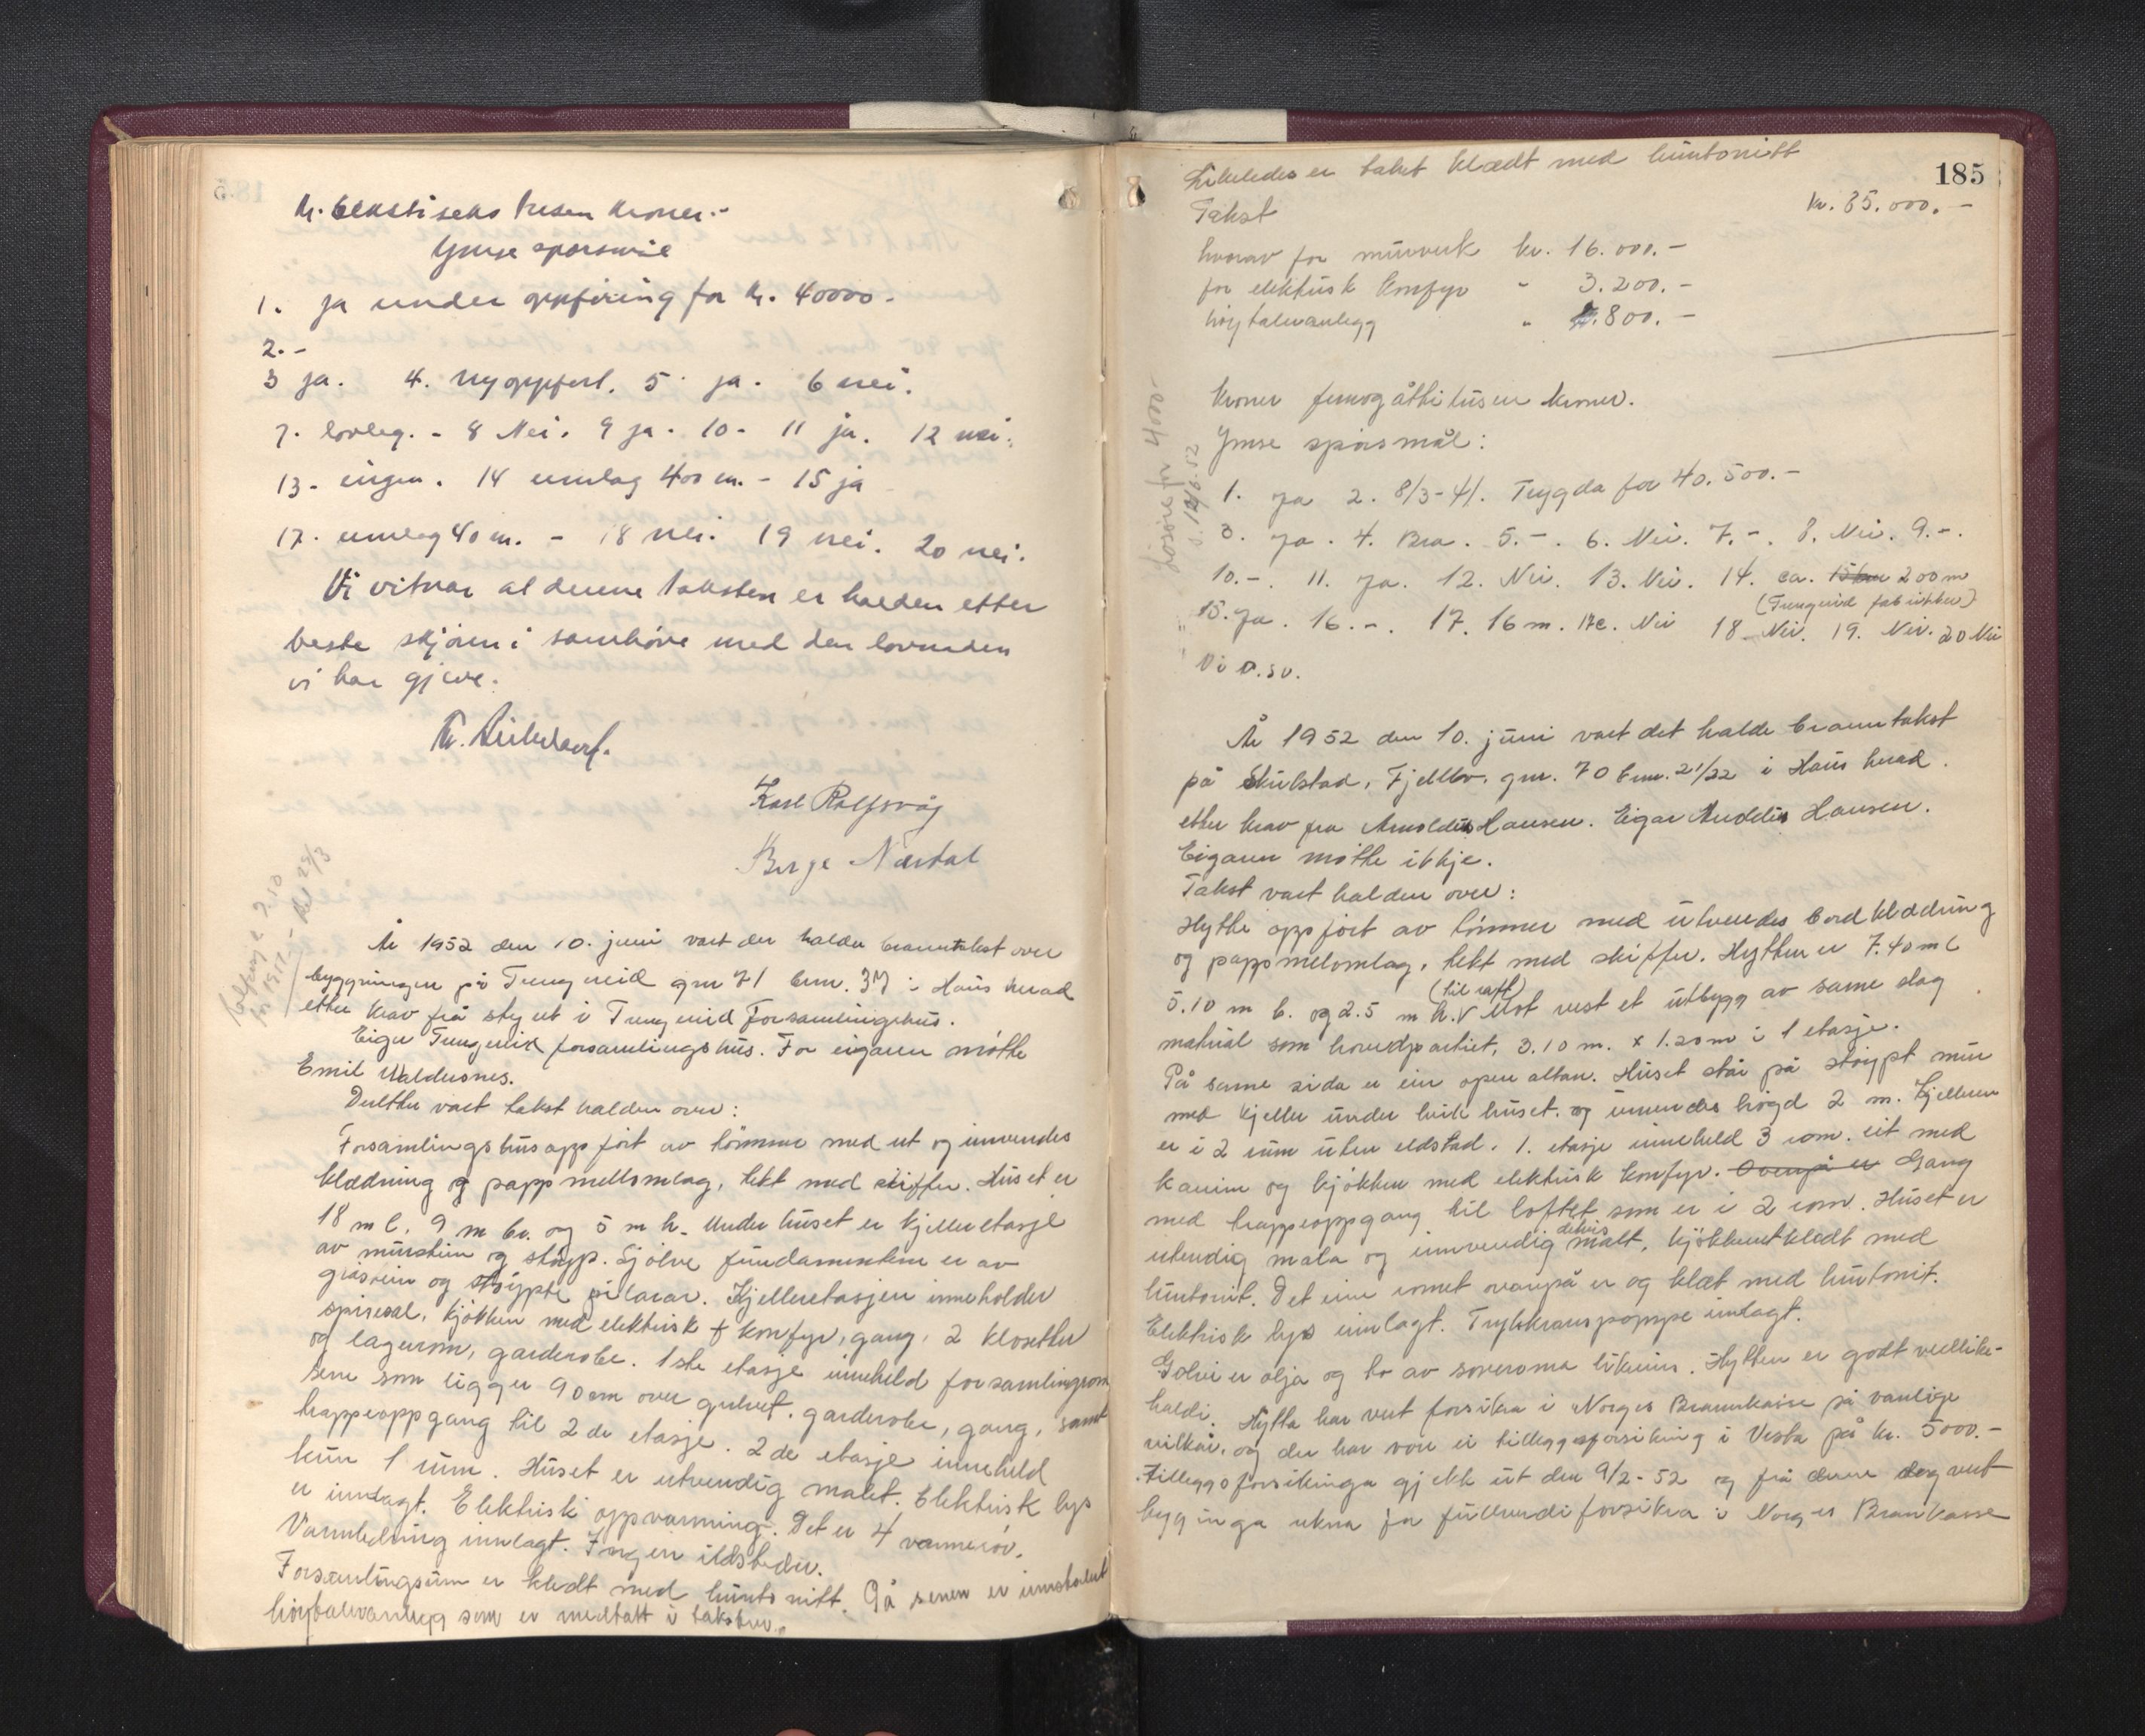 kr. sekstiseks tusen kroner.-
Ymse spørsmål
1. ja under oppføring for kr. 40000.-
2. -
3 ja. 4. ny oppført. 5 ja. 6 nei.
7. lovleg. - 8 Nei. 9 ja - 10 - 11 ja. 12 nei.
13. ingen. 14 umlag 400 m. - 15 ja
17. umlag 40 m. - 18 nei. 19 nei. 20 nei.
Vi vitnar at denne taksten er halden etter
beste skjøn i samhøve med den lovnaden
vi har gjeve.
Karl Rolfsvåg
Børge Nærdal
År 1952 den 10. juni vart der halde branntakst over
byggningen på Tungeneid gnr 71 bnr. 37 i Haus herad
etter krav frå styret i Tungeneid Forsamlingshus.
Eigar Tungeneid forsamlingshus. For eigaren møtte
Emil Valdersnes.
Deretter vart takst halden over:
Forsamlingshus oppført av tømmer med ut og innvendes
klædning og papp mellomlag, tekt med skiffer. Huset er
18 m l. 9 m br. og 5 m h. Under huset er kjelleretasje
av murstein og støyp. Sjølve fundamentene er av
gråstein og støypte pilarar. Kjelleretasjen inneholder
spisesal, kjøkken med elektrisk komfyr, gang, 2 klosetter
og lagerrom, garderobe. 1ste etasje inneheld forsamlingsrom
sene som ligger 90 cm over gulvet. garderobe, gang, samt
trappeoppgang til 2 de etasje. 2 de etasje inneheld
kun 1 rum. Huset er utvendig malt. Elektrisk lys
er innlagt. Elektrisk oppvarming. Det er 4 varmerør.
Vannledning innlagt. Ingen ildsteder.
Forsamlingsrum er kledt med huntonitt. På senen er innstalert
høytaleranlegg som er medtatt i taksten.
185
Likeledes er taket klædt med huntonitt
Takst kr. 85.000.-
hvorav for murverk kr. 16.000.-
for elektrisk komfyr " 3.200.-
høytaleranlegg " 800.-
Kroner femogåttitusen kroner.
Ymse spørsmål:
1. Ja 2. 8/3-41. Trygda for 40.500.-
3. Ja. 4. Bra. 5.-. 6. Nei. 7.-. 8. Nei. 9.-.
10.-. 11. Ja. 12. Nei. 13. Nei. 14. ca. 200 m
(Tungeneid fabrikker)
15. Ja. 16.-. 17. 16 m. 17c. Nei 18. Nei. 19. Nei. 20 Nei
Vi o.sv.
År 1952 den 10. juni vart det halde branntakst
på Skulstad, Fjellbr. gnr. 70 bnr. 21/22 i Haus herad.
etter krav fra Arnoldus Hansen. Eigar Hansen.
Eigaren møtte ikkje.
Takst vart halden over:
Hytte oppført av tømmer med utvendes bordklædning
og pappmelomlag, tekt med skiffer. Hytten er 7.40 m l
(til raft)
5.10 m b. og 2.5 m h. Mot vest et utbygg av same slag
matrial som hovedpartiet, 3.10 m. x 1.20 m i 1 etasje.
På same sida er ein open altan. Huset står på støypt mur
med kjeller under heile huset. og innvendes høgd 2 m. Kjelleren
er i 2 rum uten eldstad. 1. etasje inneheld 3 rom. eit med
kamin og kjøkken med elektrisk komfyr. Ovenpå er Gang
med trappeoppgang til loftet som er i 2 rom. Huset er
delvis
utvendig mala og innvendig malt, kjøkkenet kledt med
huntonit. Det eine romet ovanpå er og klæt med huntonit.
Elektrisk lys innlagt. Trykkranspumpe innlagt.
Golvi er olja og to av soveroma likeins. Hytten er godt vedlike-
haldi. Hytta har vert forsikra i Norges Brannkasse på vanlige
vilkår, og der har vore ei tilleggsforsikring i Vesta på kr. 5000.-
Tilleggsforsikringa gjekk ut den 9/2-52 og frå denne dag vert
bygginga rekna for fullverdiforsikra i Norges Brankasse